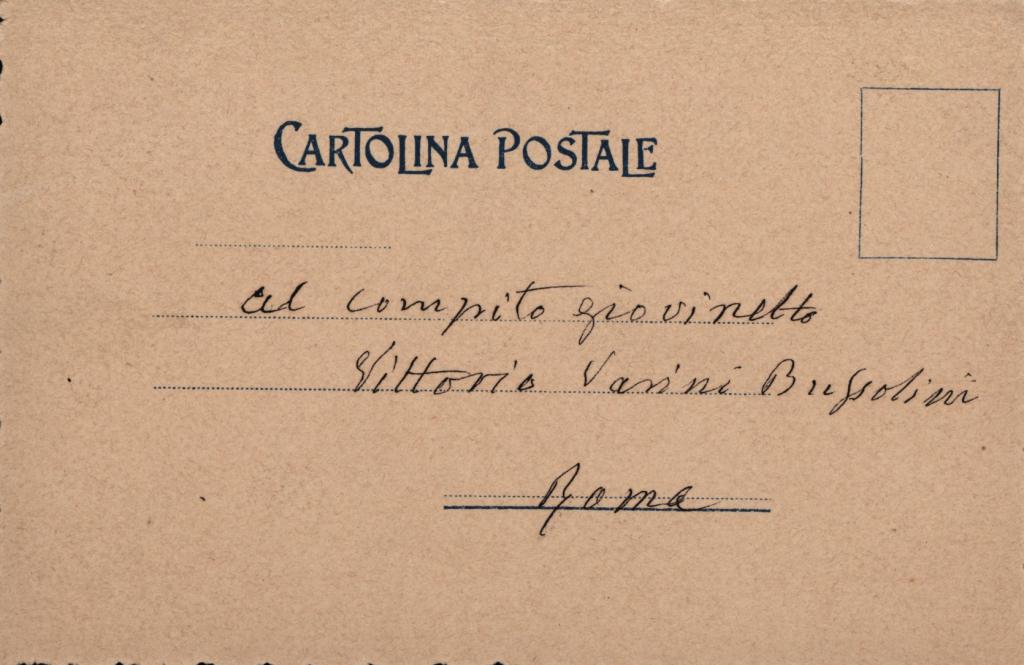 CARTOLINA POSTALE
al compito giovinetto
Vittorio Varini Bussolini
Roma